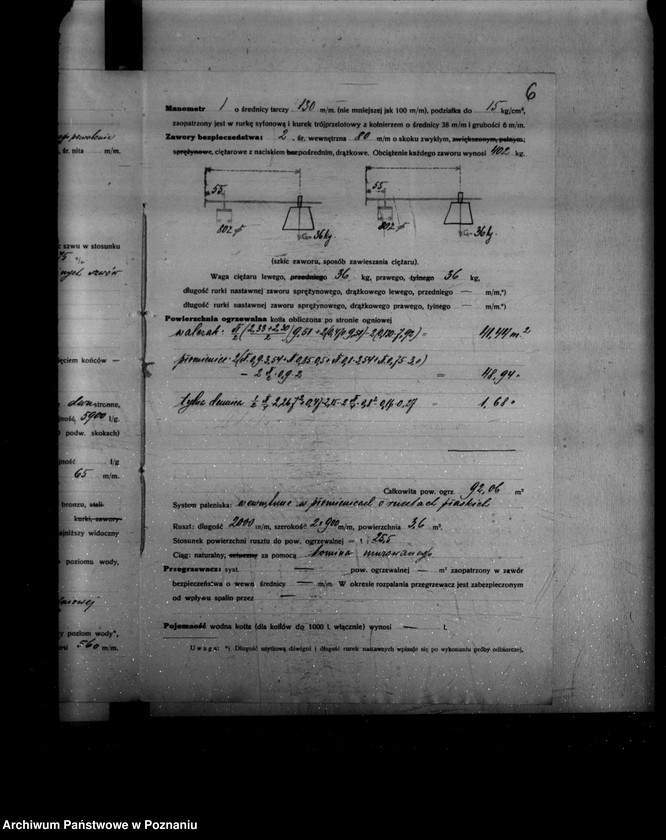 6
Manometr 1 o średnicy tarczy 130 m/m. (nie mniejszej jak 100 m/m), podziałka do 15 kg/cm²,
zaopatrzony jest w rurkę syfonową i kurek trójprzelotowy z kołnierzem o średnicy 38 m/m i grubości 6 m/m.
Zawory bezpieczeństwa: 2, śr. wewnętrzna 80 m/m o skoku zwykłym, zwiększonym, pełnym,
sprężynowe, ciężarowe z naciskiem bezpośrednim, drążkowe. Obciążenie każdego zaworu wynosi 402 kg.
55 55
802 36 kg 802 36 kg.
(szkic zaworu, sposób zawieszania ciężaru).
Waga ciężaru lewego, przedniego 36 kg, prawego, tylnego 36 kg,
długość rurki nastawnej zaworu sprężynowego, drążkowego lewego, przedniego — m/m,*)
długość rurki nastawnej zaworu sprężynowego, drążkowego prawego, tylnego — m/m.*)
Powierzchnia ogrzewalna kotła obliczona po stronie ogniowej
41,44 m²
48,94 "
1,68 "
Całkowita pow. ogrz. 92,06 m²
System paleniska: wewnętrzne w płomienicach o rusztach płaskich
Ruszt: długość 2000 m/m, szerokość 2 x 900 m/m, powierzchnia 3,6 m².
Stosunek powierzchni rusztu do pow. ogrzewalnej = 1 : 25,5
Ciąg: naturalny, sztuczny za pomocą komina murowanego
Przegrzewacz: syst. — pow. ogrzewalnej — m² zaopatrzony w zawór
bezpieczeństwa o wewn średnicy — m/m. W okresie rozpalania przegrzewacz jest zabezpieczonym
od wpływu spalin przez —
Pojemność wodna kotła (dla kotłów do 1000 l. włącznie) wynosi — l.
Uwaga: *) Długość użytkową dźwigni i długość rurek nastawnych wpisuje się po wykonaniu próby odbiorczej.
śr. nita m/m.
szwu w stosunku
ięciem końców —
dwustronne,
5900 l/g.
podw. skokach)
l/g
65 m/m.
bronzu, stali
kurki, zawory
niższy widoczny
poziomu wody,
y poziom wody",
560 m/m.
Archiwum Państwowe w Poznaniu